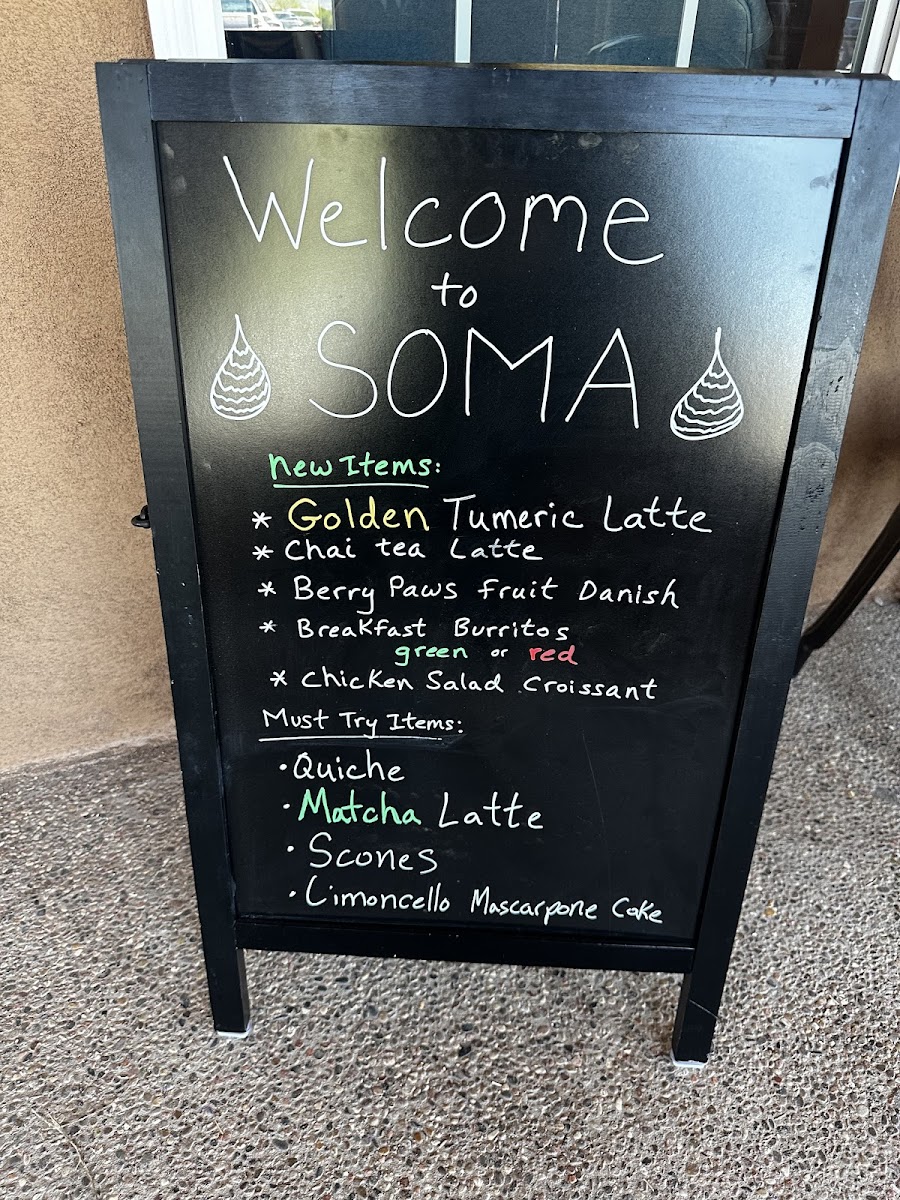 Welcome
to
SOMA
New Items:
* Golden Tumeric Latte
* Chai tea Latte
* Berry Paws fruit Danish
* Breakfast Burritos
green or red
* Chicken Salad Croissant
Must Try Items:
· Quiche
· Matcha Latte
· Scones
· Limoncello Mascarpone Cake